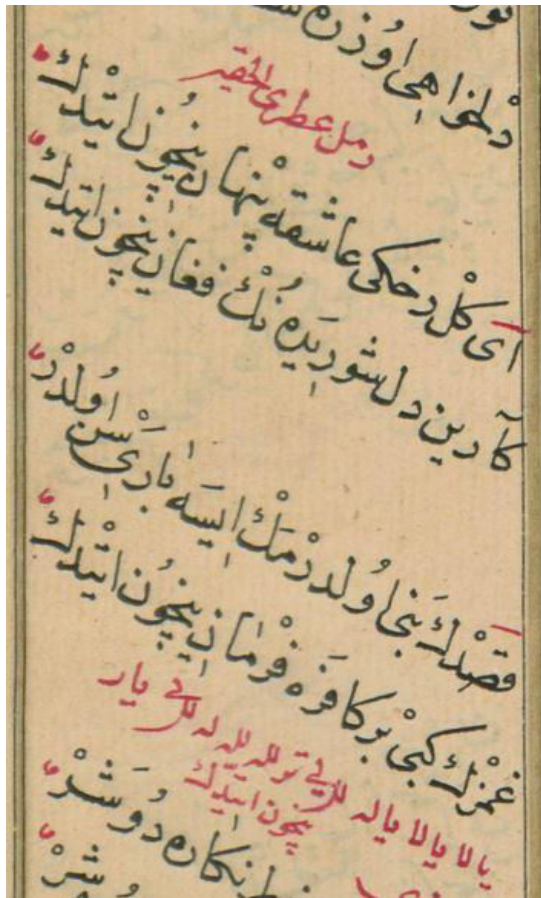 دلخواهی اوزره
رمل عطری الحقیر
آی كل رخكی عاشقه پنهان نیچون ایتدك
كارین دل شوریده نك فغان نیچون ایتدك
قصدك بنی اولدرمك ایسه باری سن اولدر
غمزك كبی بر كافره فرمان نیچون ایتدك
یالا یالا یاله للی تر لله لله له للی یار
نیچون ایتدك
انكاره دوشر